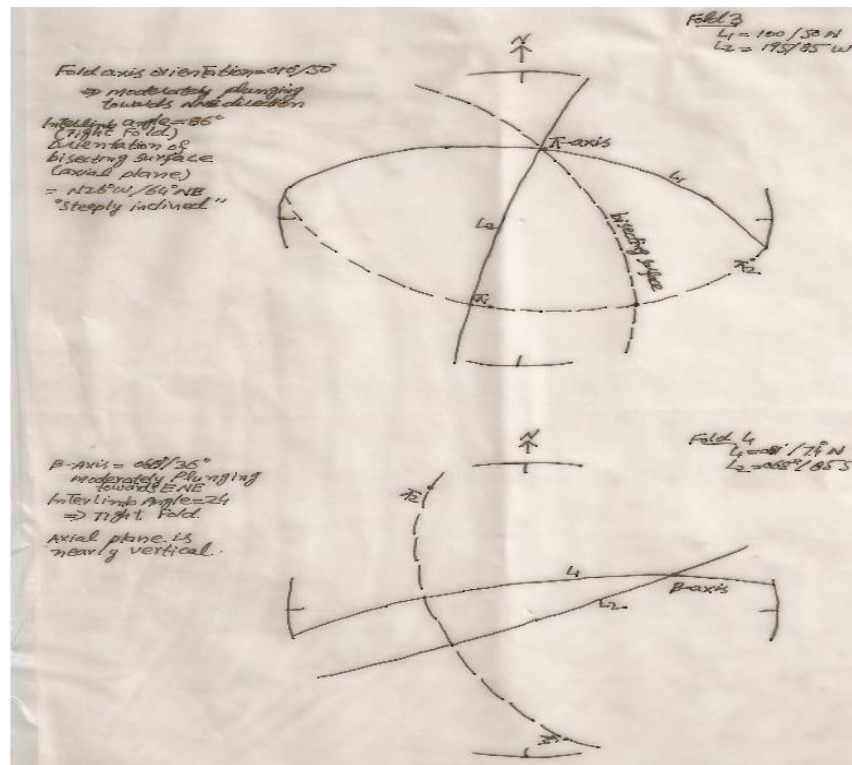 Fold 3
L1 = 100/50 N
L2 = 195/85 W
N
Fold axis orientation=010°/50°
⇒ moderately plunging
towards NNE direction
Interlimb angle=86°
(Tight Fold)
Orientation of
bisecting surface
(axial plane)
= N26°W/64°NE
"Steeply inclined"
π-axis
L1
L2
bisecting surface
π2
π1
Fold 4
L1=081°/74°N
L2=068°/85 S
N
β-Axis = 068°/36°
moderately Plunging
towards ENE
InterLimb Angle=24
⇒ Tight Fold.
Axial plane is
nearly vertical.
π2
L1
β-axis
L2